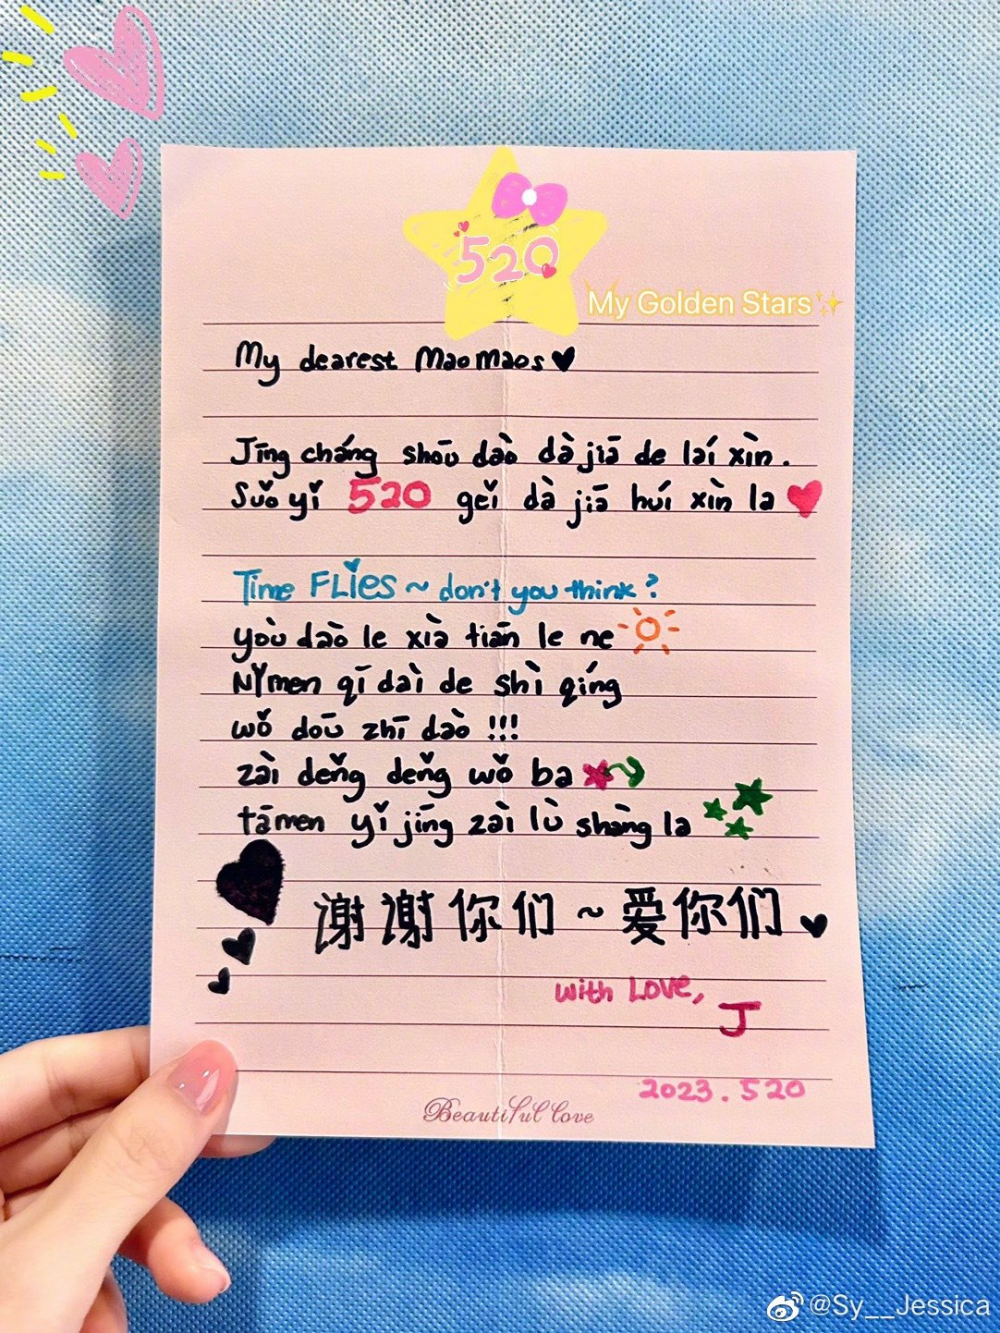 520
My Golden Stars
My dearest MaoMaos
Jīng cháng shōu dào dà jiā de laí xìn.
Suǒ yǐ 520 geǐ dà jiā huí xìn la
Time FLies ~ don't you think?
yoù dào le xià tiān le ne
Nǐmen qī daì de shì qíng
wǒ doū zhī dào !!!
zài deňg deňg wǒ ba
tāmen yǐ jīng zài lù shàng la
谢谢你们~爱你们
with Love,
J
2023.520
Beautiful love
@Sy__Jessica